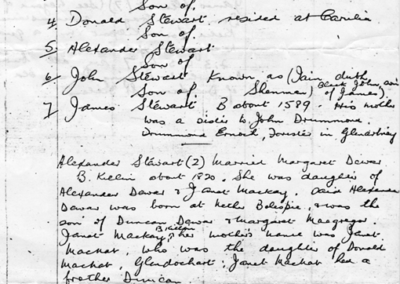 Son of
4 Donald Stewart resided at
Son of
5 Alexander Stewart
Son of
6 John Stewart Known as (Iain dubh
Son of (Black John, son
7 James Stewart B about 1589. His mother of James)
was a sister to John Drummond
Drummond Ernoch, Forester in Glenartney
Alexander Stewart (2) Married Margaret Dewar
B. Killin about 1820. She was daughter of
Alexander Dewar & Janet Mackay. Alexander
Dewar was born at & was the
son of Duncan Dewar & Margaret Macgregor.
B. Killin
Janet Mackay, her mother's name was Janet
who was the daughter of Donald
Glendochart. Janet had a
brother Duncan.